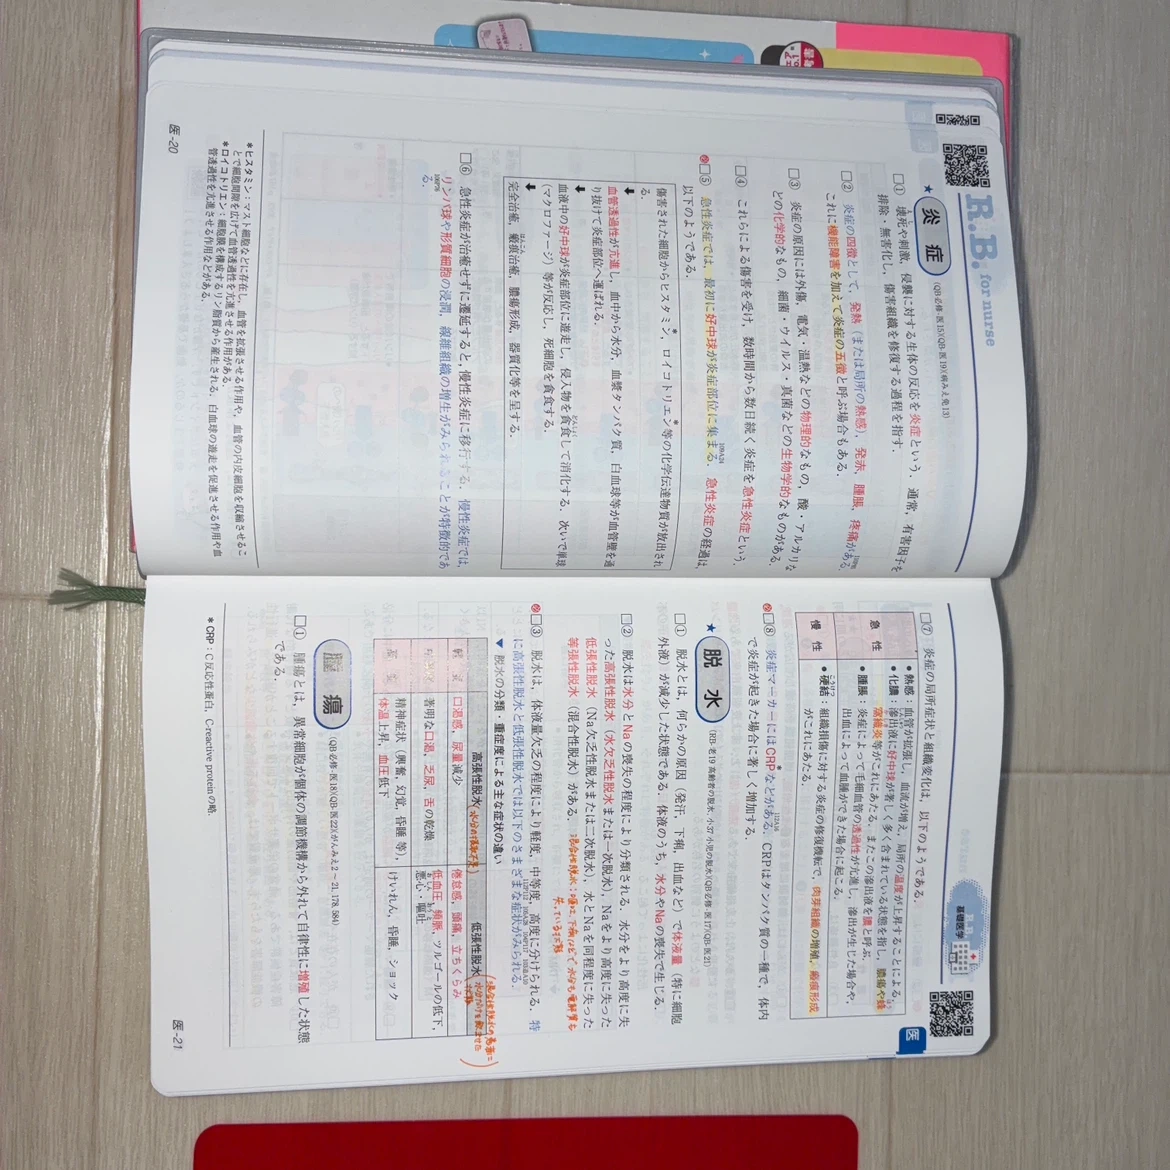 R.B. for nurse
炎 症
(QB必修-医15)(QB-医19)(病みえ免13)
★
□① 壊死や刺激,侵襲に対する生体の反応を炎症という.通常,有害因子を
排除・無害化し,傷害組織を修復する過程を指す.
□② 炎症の四徴として,発熱(または局所の熱感),発赤,腫脹,疼痛がある.
これに機能障害を加えて炎症の五徴と呼ぶ場合もある.
□③ 炎症の原因には外傷,電気・温熱などの物理的なもの,酸・アルカリな
どの化学的なもの,細菌・ウイルス・真菌などの生物学的なものがある.
□④ これらによる傷害を受け,数時間から数日続く炎症を急性炎症という.
□⑤ 急性炎症では,最初に好中球が炎症部位に集まる.急性炎症の経過は,
109A24
以下のようである.
傷害された細胞からヒスタミン*,ロイコトリエン*等の化学伝達物質が放出され
る.
⬇
血管透過性が亢進し,血中から水分,血漿タンパク質,白血球等が血管壁を通
り抜けて炎症部位へ運ばれる.
⬇
血液中の好中球が炎症部位に遊走し,侵入物を貪食して消化する.次いで単球
どんしょく
(マクロファージ)等が反応し,死細胞を貪食する.
⬇
完全治癒,瘢痕治癒,膿瘍形成,器質化等を呈する.
はんこん
□⑥ 急性炎症が治癒せずに遷延すると慢性炎症に移行する.慢性炎症では,
リンパ球や形質細胞の浸潤,線維組織の増生がみられることが特徴的であ
る.
*ヒスタミン:マスト細胞などに存在し,血管を拡張させる作用や,血管の内皮細胞を収縮させるこ
とで細胞間隙を広げて血管透過性を亢進させる作用がある.
*ロイコトリエン:細胞膜を構成するリン脂質から産生される.白血球の遊走を促進させる作用や血
管透過性を亢進させる作用などがある.
医-20
基礎医学
医
□⑦ 炎症の局所症状と組織変化は,以下のようである.
急 性
●熱感:血管が拡張し,血流が増え,局所の温度が上昇することによる.
●化膿:滲出液に好中球が著しく多く含まれている状態を指し,膿瘍や蜂
窩織炎等がこれにあたる.またこの滲出液を膿と呼ぶ.
●腫脹:炎症によって毛細血管の透過性が亢進し,滲出が生じた場合や,
出血によって血腫ができた場合に起こる.
慢 性
●硬結:組織損傷に対する炎症の修復機転で,肉芽組織の増殖,瘢痕形成
こうけつ
がこれにあたる.
□⑧ 炎症マーカーにはCRP*などがある.CRPはタンパク質の一種で,体内
112A16
で炎症が起きた場合に著しく増加する.
脱 水
(RB-老19 高齢者の脱水,小37 小児の脱水)(QB必修-医17)(QB-医21)
★
□① 脱水とは,何らかの原因(発汗,下痢,出血など)で体液量(特に細胞
外液)が減少した状態である.体液のうち,水分やNaの喪失で生じる.
□② 脱水は水分とNaの喪失の程度により分類される.水分をより高度に失
った高張性脱水(水欠乏性脱水または一次脱水),Naをより高度に失った
低張性脱水(Na欠乏性脱水または二次脱水),水とNaを同程度に失った
等張性脱水(混合性脱水)がある.
□③ 脱水は,体液量欠乏の程度により軽度,中等度,高度に分けられる.特
に高張性脱水と低張性脱水では以下のさまざまな症状がみられる.
▼脱水の分類・重症度による主な症状の違い
高張性脱水
低張性脱水
口渇感,尿量減少
倦怠感,頭痛,立ちくらみ
著明な口渇,乏尿,舌の乾燥
低血圧,頻脈,ツルゴールの低下,
悪心・嘔吐
精神症状(興奮,幻覚,昏睡 等),
体温上昇,血圧低下
けいれん,昏睡,ショック
腫 瘍
(QB必修-医18)(QB-医22)(がんみえ2～21,178,584)
□① 腫瘍とは,異常細胞が個体の調節機構から外れて自律性に増殖した状態
である.
*CRP:C反応性蛋白,C-reactive proteinの略.
医-21